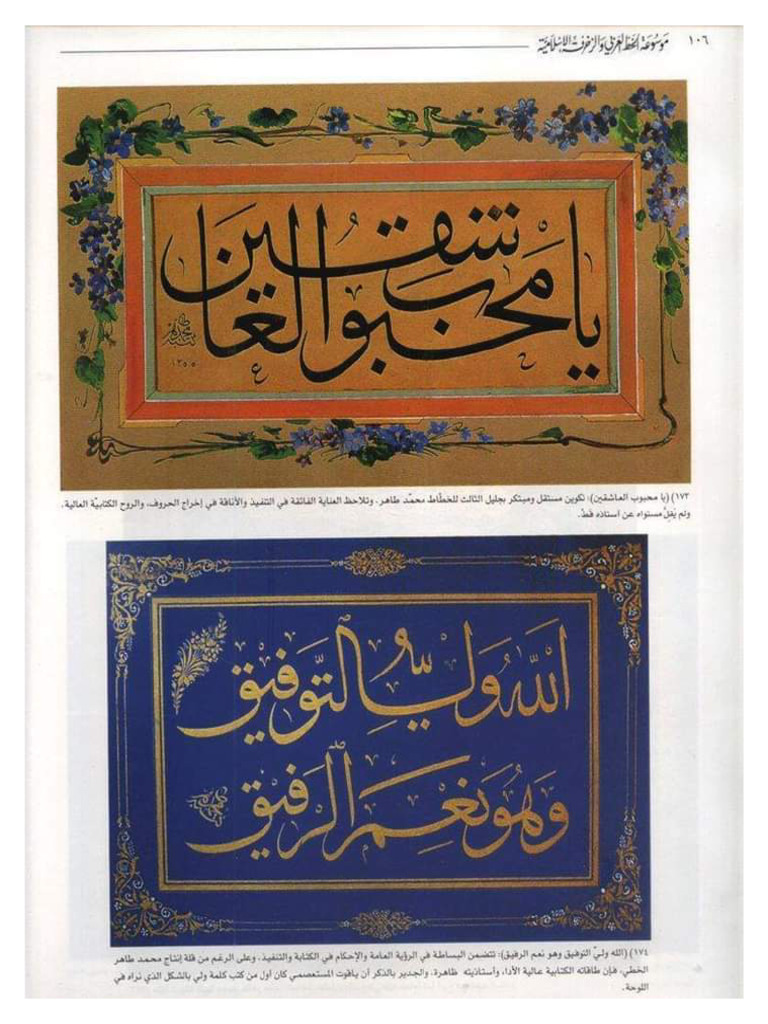 ١٠٦ موسوعة الخط العربي والزخرفة الإسلامية
يا محبوب العاشقين
١٣٥٥
١٧٣) (يا محبوب العاشقين): تكوين مستقل ومبتكر بجليل الثالث للخطّاط محمّد طاهر، وتلاحظ العناية الفائقة في التنفيذ والأناقة في إخراج الحروف، والروح الكتابيّة العالية.
ولم يَقِلَّ مستواه عن أستاذه قطّ.
اللّٰه وليّ التّوفيق
وهو نعم الرفيق
١٧٤) (الله وليّ التوفيق وهو نعم الرفيق): تتضمن البساطة في الرؤية العامة والإحكام في الكتابة والتنفيذ. وعلى الرغم من قلة إنتاج محمد طاهر
الخطي، فإن طاقاته الكتابية عالية الأداء، وأستاذيته ظاهرة، والجدير بالذكر أن ياقوت المستعصمي كان أول من كتب كلمة ولي بالشكل الذي نراه في
اللوحة.